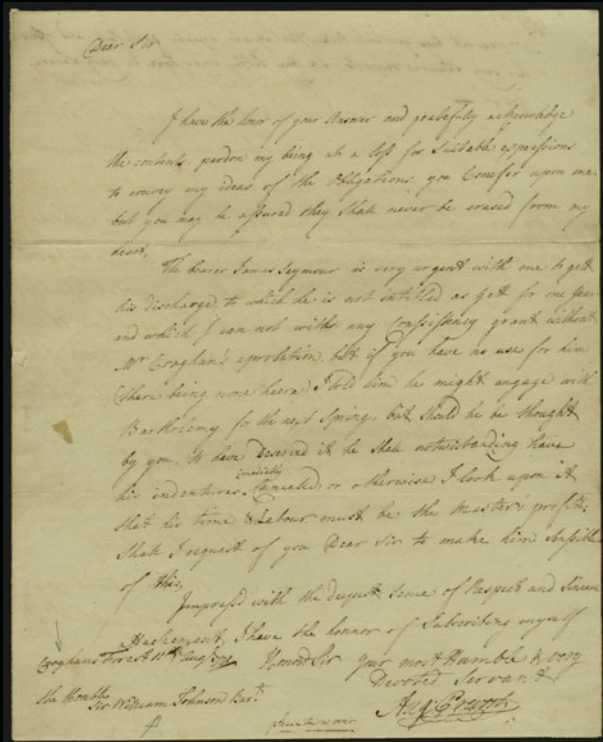 Dear Sir
I have the honor of your Answer and gratefully acknowledge
the contents. pardon my being at a loss for Suitable expressions
to convey my ideas of the Obligations you Confer upon me
but you may be assured they Shall never be erased from my
heart,
The bearer James Seymour is very urgent with me to gett
his discharge, to which he is not intitled as yett for one year
and which I can not with any Consistency grant without
Mr Croghan's aprobation, but if you have no use for him
(there being none heere) I told him he might engage with
Bartholemy for the next Spring. but Should he be thought
by you, to have Deserved it he Shall notwistanding have
his indentures imediatly Cancelled, or otherwise I look upon it
that his time & Labour must be the Master's profitt;
Shall I request of you Dear Sir to make him Sensible
of this,
Impress'd with the deepest Sence of Respect and Sincere
Attachement, I have the honnor of Subscribing myself
Croghans Forest 11th Augt Honord Sir your most Humble & very
Devoted Servant
The Honble
Sir William Johnson Bart.
Augt Prevost